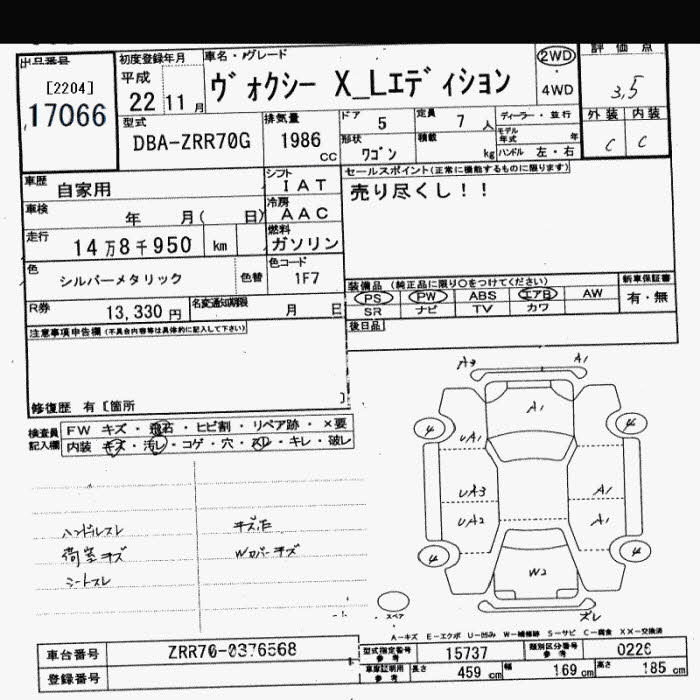 出品番号
[2204]
17066
初度登録年月
平成
22 11月
車名・グレード
ヴォクシー X_Lエディション
2WD
4WD
評価点
3,5
外装 内装
C C
型式
DBA-ZRR70G
排気量
1986 CC
ドア 5
定員 7 人
形状 ワゴン
積載 kg
ディーラー・並行
モデル年式 年
ハンドル 左・右
車歴 自家用
シフト IAT
セールスポイント(正常に機能するものに限ります)
売り尽くし!!
車検 年 月( 日)
冷房 AAC
走行 14万8千950 km
燃料 ガソリン
色 シルバーメタリック 色替
色コード 1F7
装備品 (純正品に限り○をつけてください)
新車保証書
PS PW ABS エアB AW
有・無
SR ナビ TV カワ
R券 13,330 円
名変通知期限 月 日
後日品
注意事項申告欄(不具合内容等は具体的に記入して下さい)
修復歴 有[箇所 ]
検査員記入欄
FW キズ・飛石・ヒビ割・リペア跡・×要
内装 キズ・汚レ・コゲ・穴・スレ・キレ・破レ
ハンドルスレ
荷室キズ
シートスレ
Wカバーキズ
A1
A1
4
4
UA1
UA3
A1
UA2
A1
4
4
W2
スペア
ズレ
A-キズ E-エクボ U-凹み W-補修跡 S-サビ C-腐食 XX-交換済
車台番号 ZRR70-0376568
型式指定番号 参考 15737
類別区分番号 参考 0226
登録番号
車庫証明用 参考 長さ 459 cm 幅 169 cm 高さ 185 cm